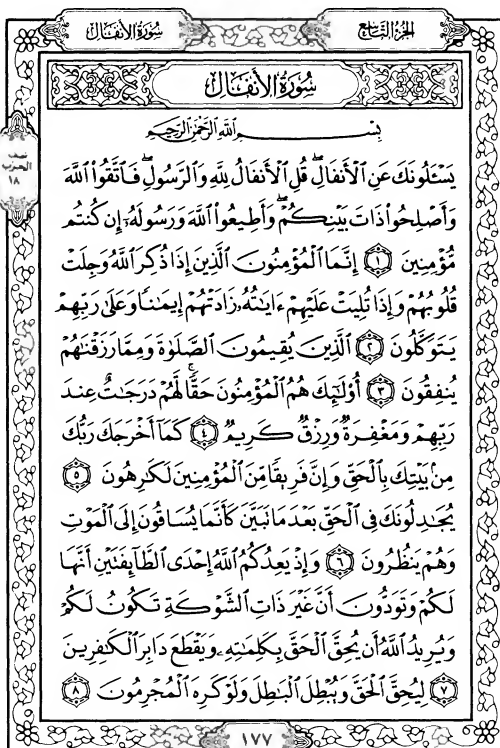 الجزء التاسع
سورة الأنفال
نصف
الحزب
١٨
سُورَةُ الأَنفَالِ
بِسْمِ اللَّهِ الرَّحْمَٰنِ الرَّحِيمِ
يَسْـَٔلُونَكَ عَنِ ٱلْأَنفَالِ ۖ قُلِ ٱلْأَنفَالُ لِلَّهِ وَٱلرَّسُولِ ۖ فَٱتَّقُوا۟ ٱللَّهَ
وَأَصْلِحُوا۟ ذَاتَ بَيْنِكُمْ ۖ وَأَطِيعُوا۟ ٱللَّهَ وَرَسُولَهُۥٓ إِن كُنتُم
مُّؤْمِنِينَ ١ إِنَّمَا ٱلْمُؤْمِنُونَ ٱلَّذِينَ إِذَا ذُكِرَ ٱللَّهُ وَجِلَتْ
قُلُوبُهُمْ وَإِذَا تُلِيَتْ عَلَيْهِمْ ءَايَٰتُهُۥ زَادَتْهُمْ إِيمَٰنًا وَعَلَىٰ رَبِّهِمْ
يَتَوَكَّلُونَ ٢ ٱلَّذِينَ يُقِيمُونَ ٱلصَّلَوٰةَ وَمِمَّا رَزَقْنَٰهُمْ
يُنفِقُونَ ٣ أُو۟لَٰٓئِكَ هُمُ ٱلْمُؤْمِنُونَ حَقًّا ۚ لَّهُمْ دَرَجَٰتٌ عِندَ
رَبِّهِمْ وَمَغْفِرَةٌ وَرِزْقٌ كَرِيمٌ ٤ كَمَآ أَخْرَجَكَ رَبُّكَ
مِنۢ بَيْتِكَ بِٱلْحَقِّ وَإِنَّ فَرِيقًا مِّنَ ٱلْمُؤْمِنِينَ لَكَٰرِهُونَ ٥
يُجَٰدِلُونَكَ فِى ٱلْحَقِّ بَعْدَ مَا تَبَيَّنَ كَأَنَّمَا يُسَاقُونَ إِلَى ٱلْمَوْتِ
وَهُمْ يَنظُرُونَ ٦ وَإِذْ يَعِدُكُمُ ٱللَّهُ إِحْدَى ٱلطَّآئِفَتَيْنِ أَنَّهَا
لَكُمْ وَتَوَدُّونَ أَنَّ غَيْرَ ذَاتِ ٱلشَّوْكَةِ تَكُونُ لَكُمْ
وَيُرِيدُ ٱللَّهُ أَن يُحِقَّ ٱلْحَقَّ بِكَلِمَٰتِهِۦ وَيَقْطَعَ دَابِرَ ٱلْكَٰفِرِينَ
٧ لِيُحِقَّ ٱلْحَقَّ وَيُبْطِلَ ٱلْبَٰطِلَ وَلَوْ كَرِهَ ٱلْمُجْرِمُونَ ٨
١٧٧